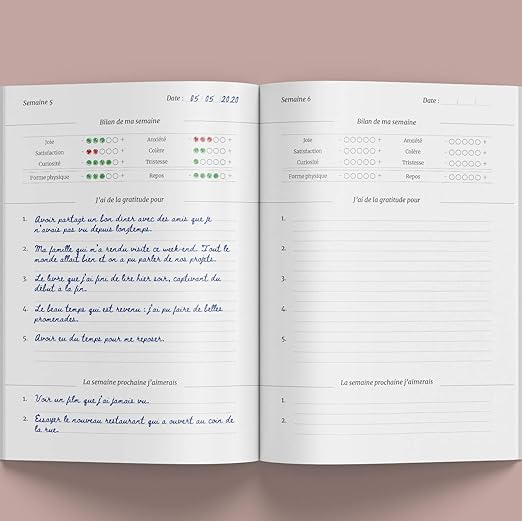 Semaine 5
Date : 05 05 2020
Bilan de ma semaine
Joie - + Anxiété - +
Satisfaction - + Colère - +
Curiosité - + Tristesse - +
Forme physique - + Repos - +
J'ai de la gratitude pour
1. Avoir partagé un bon diner avec des amis que je
n'avais pas vu depuis longtemps.
2. Ma famille qui m'a rendu visite ce week-end. Tout le
monde allait bien et on a pu parler de nos projets.
3. Le livre que j'ai fini de lire hier soir, captivant du
début à la fin.
4. Le beau temps qui est revenu : j'ai pu faire de belles
promenades.
5. Avoir eu du temps pour me reposer.
La semaine prochaine j'aimerais
1. Voir un film que j'ai jamais vu.
2. Essayer le nouveau restaurant qui a ouvert au coin de
la rue.
Semaine 6
Date :
Bilan de ma semaine
Joie - + Anxiété - +
Satisfaction - + Colère - +
Curiosité - + Tristesse - +
Forme physique - + Repos - +
J'ai de la gratitude pour
1.
2.
3.
4.
5.
La semaine prochaine j'aimerais
1.
2.